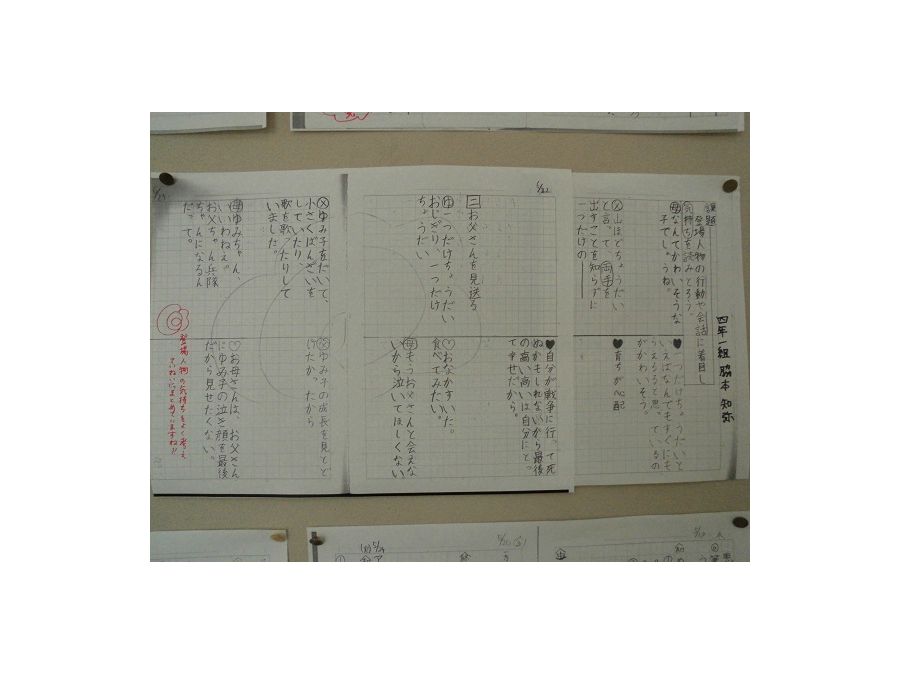 四年一組 脇本 知弥
課題
登場人物の行動や会話に着目し
気持ちを読みとろう。
母なんてかわいそうな
子でしょうね。
♥一つだけちょうだいと
いえばなんでもすぐにも
らえるると思っているの
がかわいそう。
父山ほどちょうだい
と言って、両手を
出すことを知らずに
一つだけの――
♥育ちが心配
5/22
二お父さんを見送る
ゆ一つだけちょうだい
おじぎり、一つだけ
ちょうだい
♥自分が戦争に行って死
ぬかもしれないから最後
の高い高いは自分にとっ
て幸せだから。
♡おなかすいた。
食べてみたい。
母もうお父さんと会えな
いから泣いてほしくない
父ゆみ子をだいて、
小さくばんざいを
していたり、
歌を歌ったりして
いました。
父ゆみ子の成長を見とど
けたかったから
母ゆみちゃん、
いいわねえ。
お父ちゃん兵隊
ちゃんになるん
だって。
♡お母さんは、お父さん
にゆみ子の泣き顔を最後
だから見せたくない。
登場人物の気持ちをよく考え
ていねいにまとめていますね!!